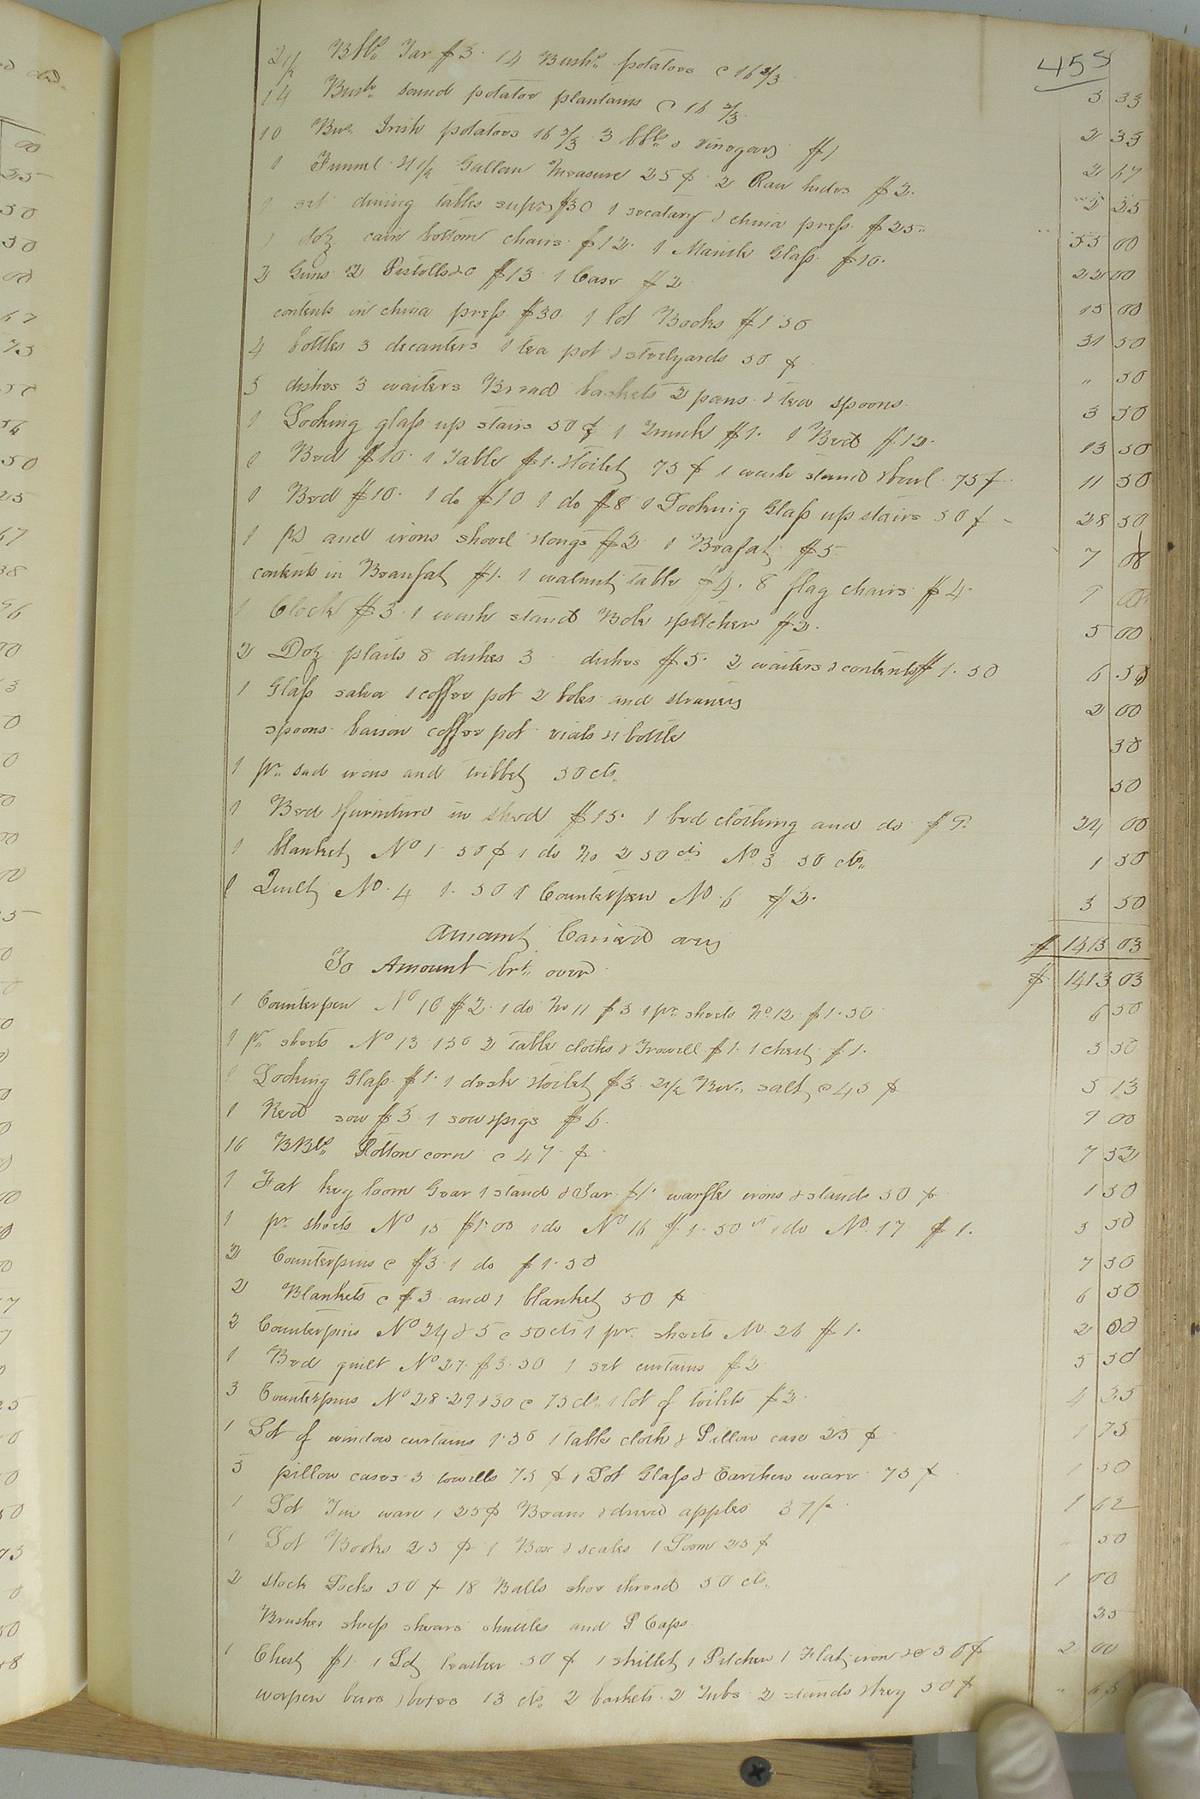 455
2 1/2 Bbls Tar $3. 14 Bushs. potatoes @ 16 2/3 3 33
14 Bush. sound potatoe plantains @ 16 2/3 2 33
10 Bus. Irish potatoes 16 2/3 3 bbls & vinegary $1 2 67
1 Funnel 4 1/2 Gallon Measure 25 ¢ 2 Raw hides $2. 2 25
1 set dining tables $30 1 secatary & china press $25. 55 00
1 doz cain bottom chairs $12. 1 Mantle Glass $10. 22 00
2 Guns 2 Pistolls &c $13 1 Case $2 15 00
contents in china press $30 1 lot Books $1 50 31 50
4 bottles 3 decanters 1 tea pot & steelyards 50 ¢ " 50
5 dishes 3 waiters Bread baskets 2 pans & tea spoons 3 50
1 Looking glass up stairs 50 ¢ 1 Trunk $1. 1 Bed $12. 13 50
1 Bed $10. 1 Table $1. & toilet 75 ¢ 1 wash stand & bowl 75 ¢ 11 50
1 Bed $10. 1 do $10 1 do $8 1 Looking Glass up stairs 50 ¢ 28 50
1 pr and irons shovel & tongs $2 1 Boafat $5 7 00
contents in Beaufat $1. 1 walnut table $4. 8 flag chairs $4. 9 00
1 Clock $3. 1 wash stand Bole & pitcher $2. 5 00
2 Doz plaits 8 dishes 3 dishes $5. 2 waiters & contents $1.50 6 50
1 Glass salva 1 coffee pot 2 boles and 2 00
spoons baison coffee pot vials & bottle 30
1 pr. sad irons and tribbet 50 cts. 50
1 Bed & furniture in shed $15. 1 bed clothing and do $9. 24 00
1 blanket No 1 50 ¢ 1 do No 2 50 cts No 3 50 cts. 1 50
1 Quilt No. 4 1.50 1 Counterpen No 6 $2. 3 50
Amount Carried over $ 1413 03
To Amount brt. over $ 1413 03
1 Counterpen No 10 $2. 1 do No 11 $3 1 pr. sheets No. 12 $1.50 6 50
1 pr. sheets No 13 150 2 table cloths & Trowell $1. 1 chest $1. 3 50
1 Looking Glass $1. 1 desk & toilet $3 2 1/2 Bus. salt @ 45 ¢ 5 13
1 Red sow $3 1 sow & pigs $6. 9 00
16 BBls. Rotton corn @ 47 ¢ 7 52
1 Fat keg loom Gear 1 stand & Jar $1. waffle irons & stands 50 ¢ 1 50
1 pr sheets No 15 $1.00 1 do No 16 $1.50 1 do No. 17 $1. 3 50
2 Counterpins @ $3 1 do $1.50 7 50
2 Blankets @ $3 and 1 blanket 50 ¢ 6 50
2 Counterpins No 24 & 5 @ 50 cts 1 pr. sheets No. 26 $1. 2 00
1 Bed quilt No 27. $3.50 1 set curtains $2 5 50
3 Counterpins No 28.29 & 30 @ 75 cts. 1 lot of toilets $2 4 25
1 Lot of window curtains 1.50 1 table cloth & Pillow case 25 ¢ 1 75
5 pillow cases. 3 towells 75 ¢ 1 Lot Glass & Earthen ware 75 ¢ 1 50
1 Lot Tin ware 1 25¢ Beans & dried apples 37 1/2 1 62
1 Lot Books 25 ¢ 1 Box & scales 1 Loom 25 ¢ 50
2 stock Locks 50 ¢ 18 Balls shoe thread 50 cts. 1 00
Brushes sheep shears shuttles and P Caps 25
1 Chest $1. 1 Lot leather 50 ¢ 1 skillet 1 Pitcher 1 Flat iron &c 50 ¢ 2 00
worpen bars & boxes 13 cts. 2 baskets. 2 Tubs 2 stands & keg 50 ¢ " 63